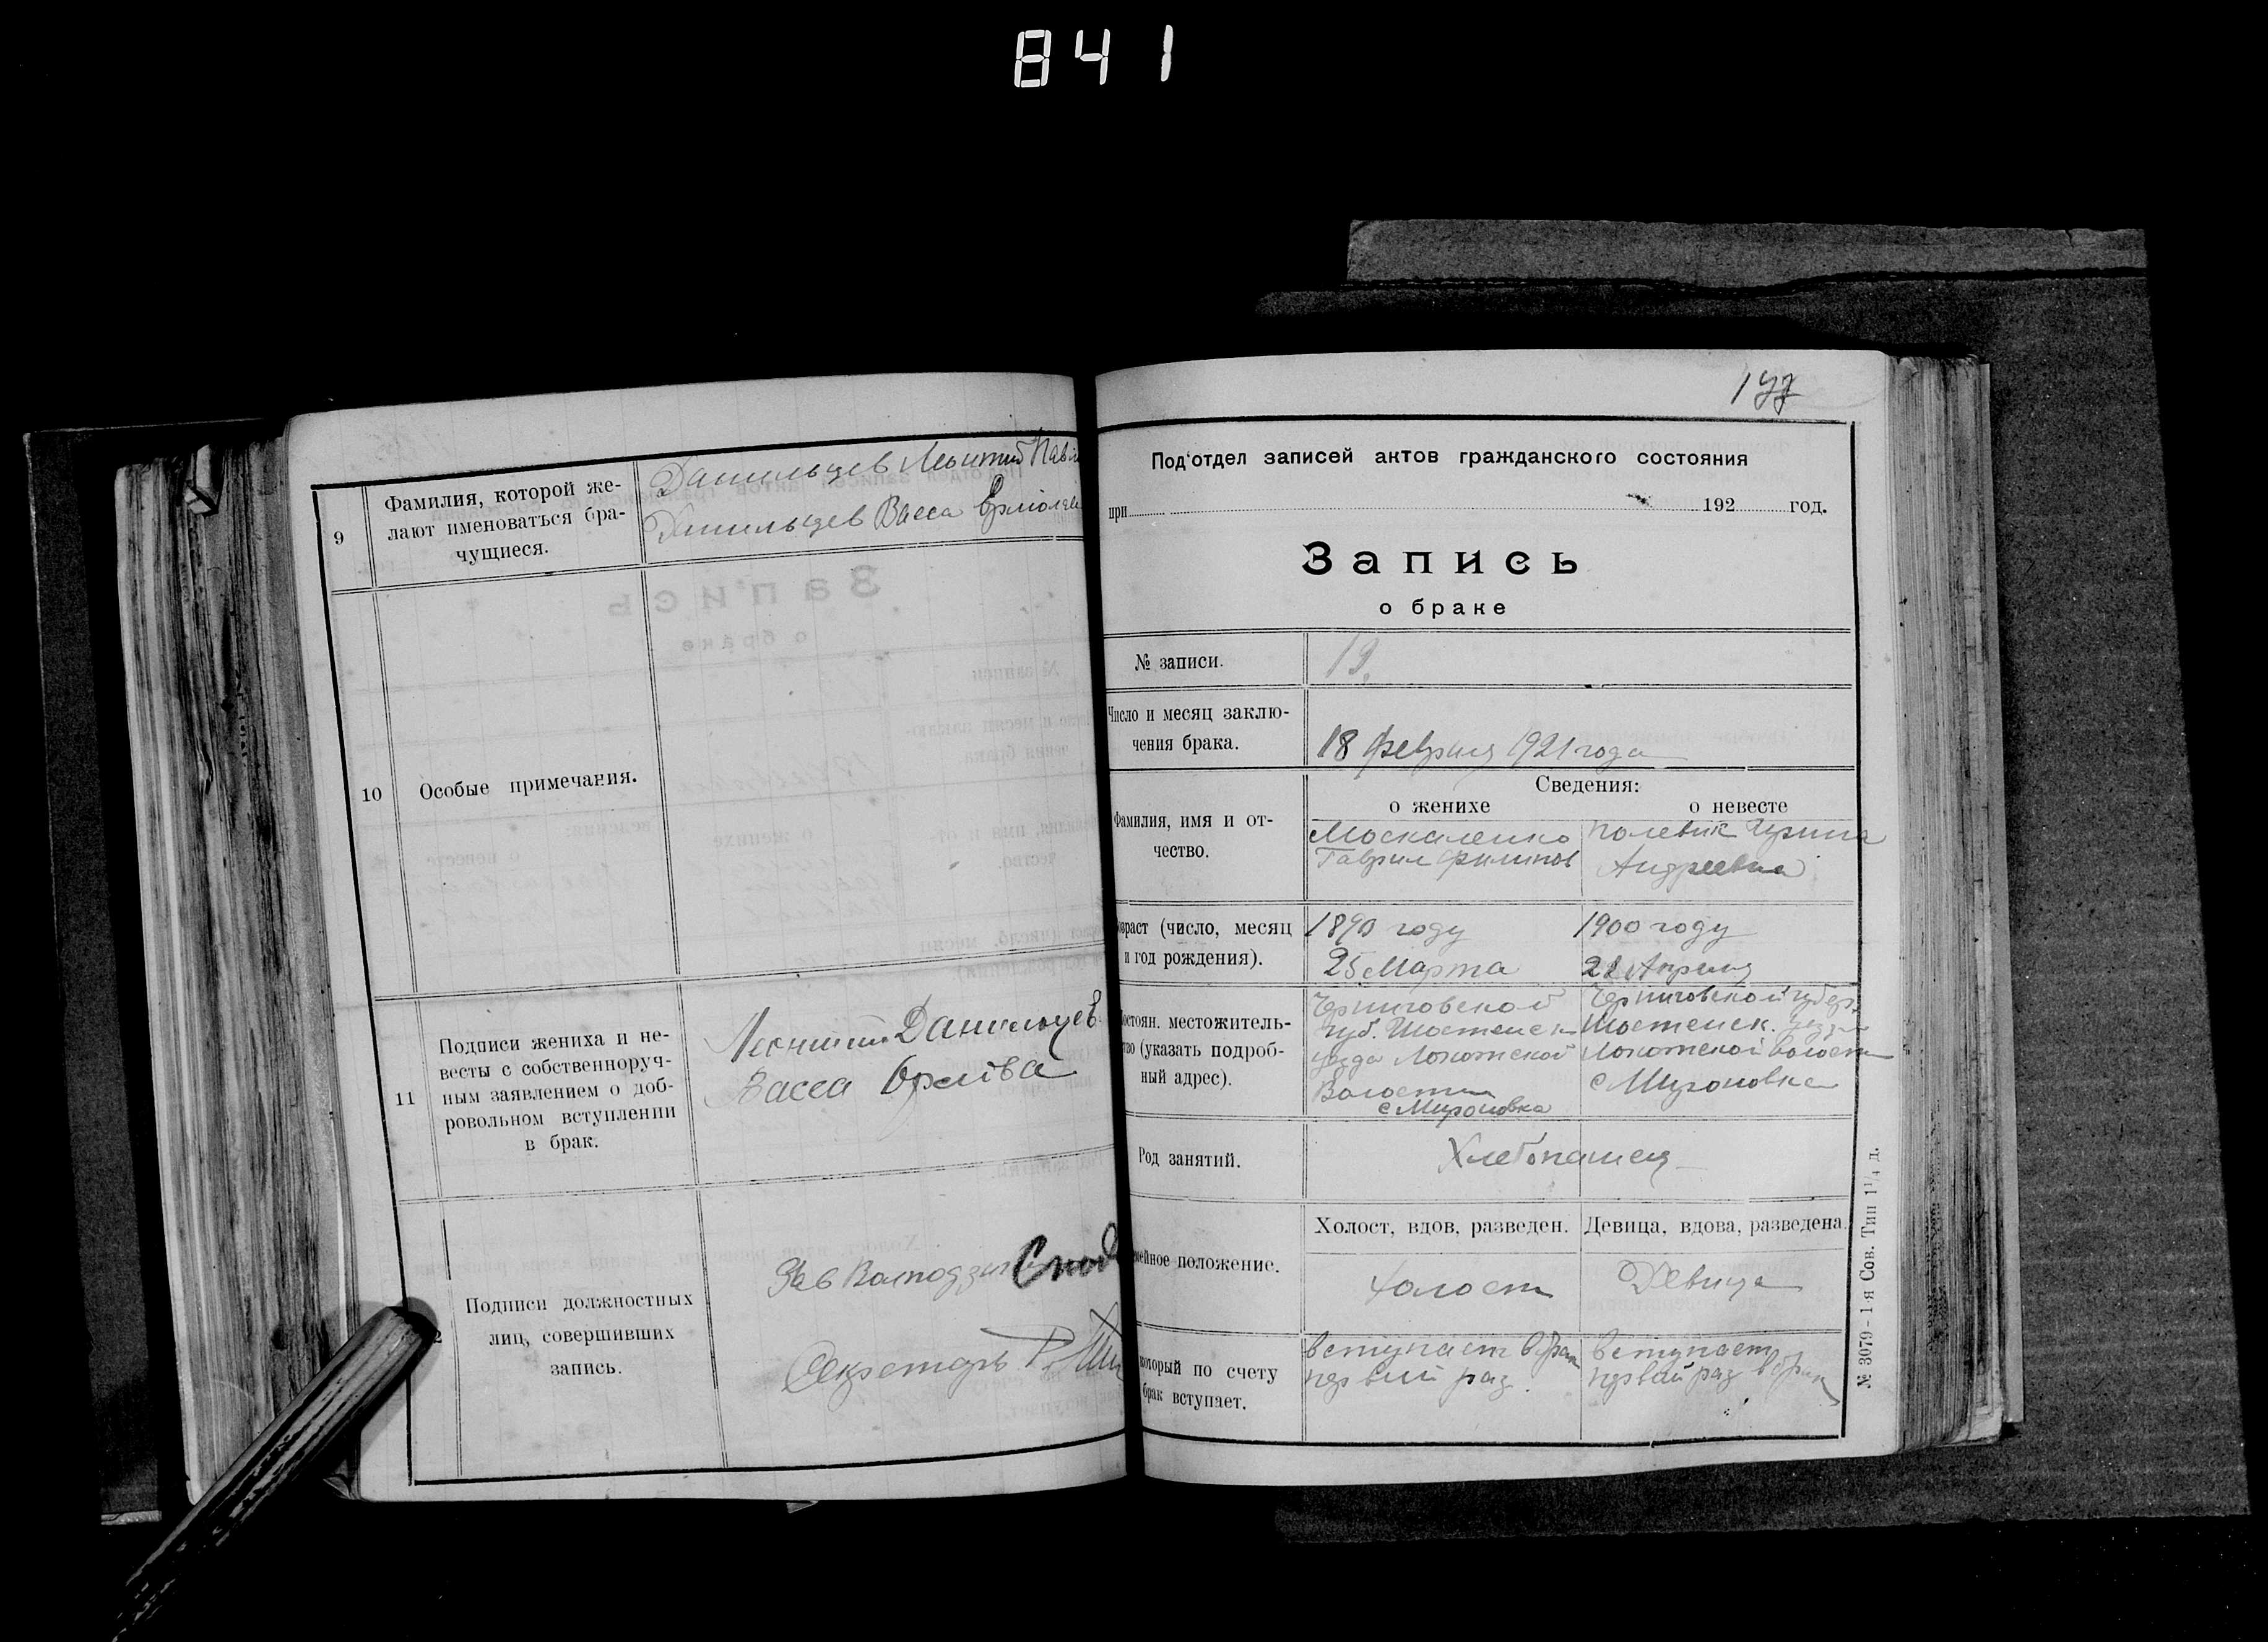 841
9
Фамилия, которой же-
лают именоваться бра-
чущиеся.
Данильцев Леонтий
Данильцев Васса
10
Особые примечания.
11
Подписи жениха и не-
весты с собственноруч-
ным заявлением о доб-
ровольном вступлении
в брак.
Леонтий Данильцев
Васса
2
Подписи должностных
лиц, совершивших
запись.
Зав
Секретарь
177
Под'отдел записей актов гражданского состояния
при 192 год.
Запись
о браке
№ записи.
19.
Число и месяц заклю-
чения брака.
18 февраля 1921 года
Сведения:
о женихе
о невесте
Фамилия, имя и от-
чество.
Москаленко
Гаврил Филипов
Полевик Ирина
Андреевна
зраст (число, месяц
и год рождения).
1890 году
25 Марта
1900 году
21 Апреля
остоян. местожитель-
тво (указать подроб-
ный адрес).
Черниговской
губ. Шостенск
уезда Локотской
Волости
с Мироновка
Черниговской губер.
Шостенск. уезда
Локотской волости
с Мироновка
Род занятий.
Хлебопашец
мейное положение.
Холост, вдов, разведен.
Девица, вдова, разведена.
Холост
Девица
который по счету
брак вступает.
вступает в брак
первый раз.
вступает
первый раз в брак
№ 3079 – 1-я Сов. Тип 1¹/₄ д.